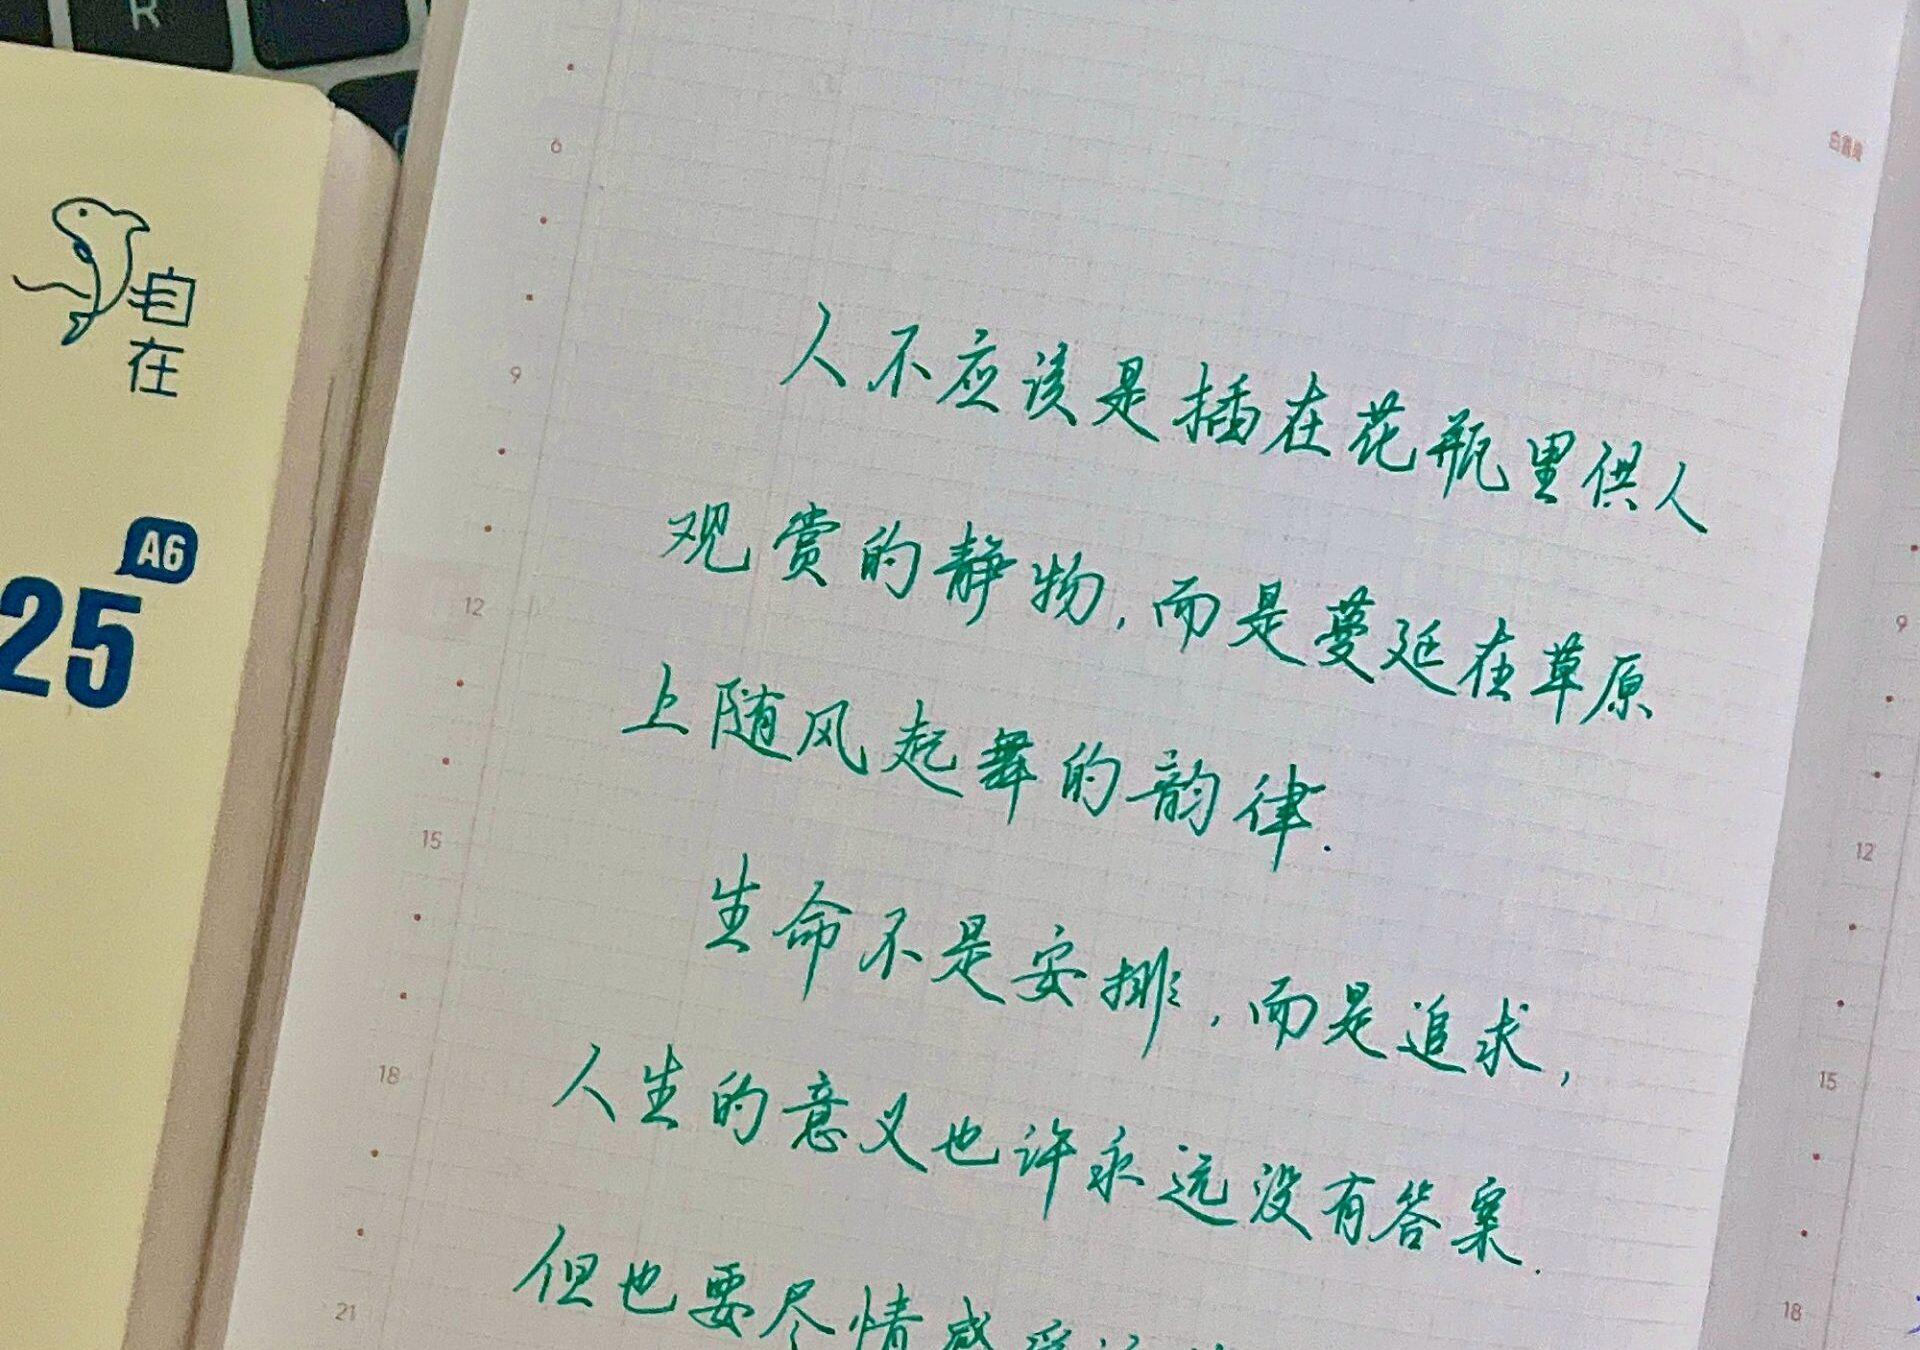 R
自
在
A6
25
6
9
12
15
18
21
人不应该是插在花瓶里供人
观赏的静物,而是蔓延在草原
上随风起舞的韵律.
生命不是安排,而是追求,
人生的意义也许永远没有答案.
但也要尽情感受
9
12
15
18